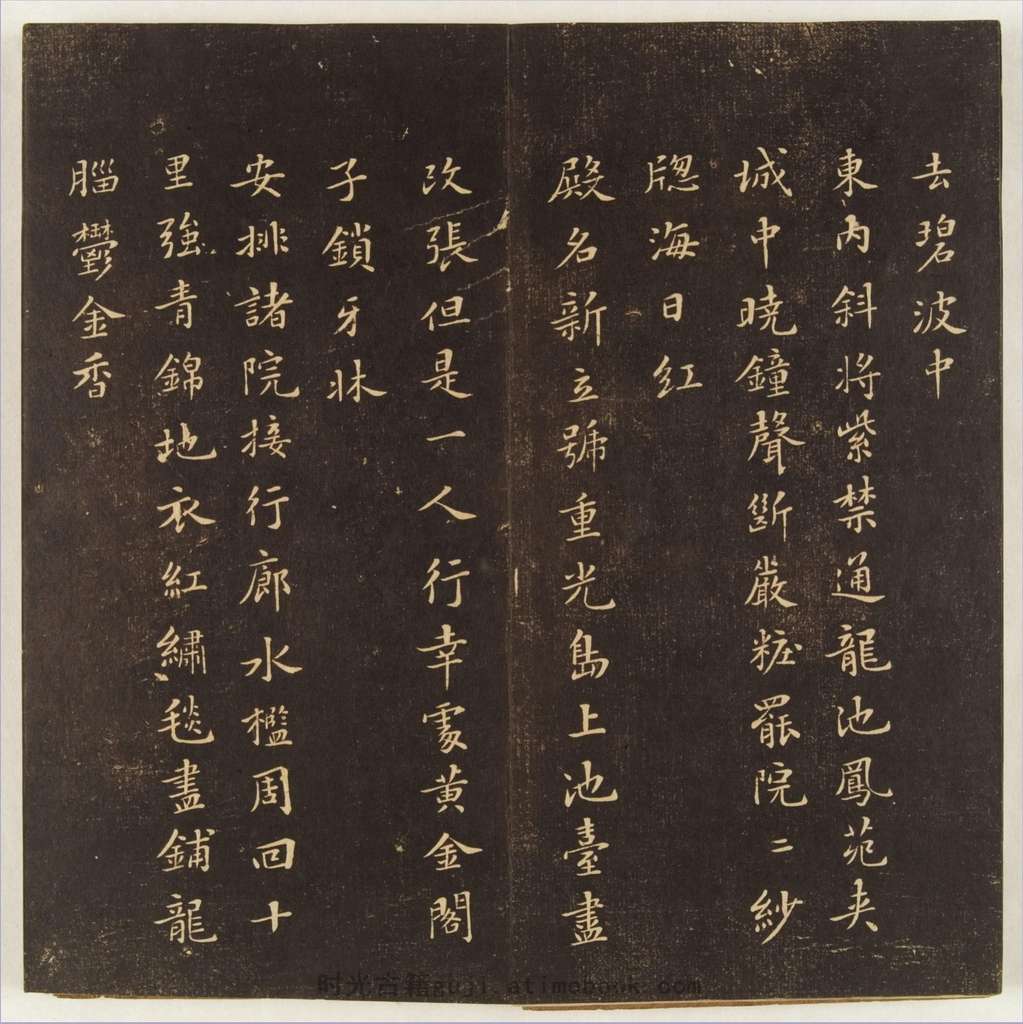 去碧波中
東内斜将紫禁通龍池鳳苑夹
城中曉鐘聲斷嚴粧罷院二紗
牎海日紅
殿名新立號重光島上池臺盡
改張但是一人行幸處黃金閣
子鎖牙牀
安排諸院接行廊水檻周回十
里強青錦地衣紅繡毯盡鋪龍
腦鬱金香
时光古籍guji.atimebook.com